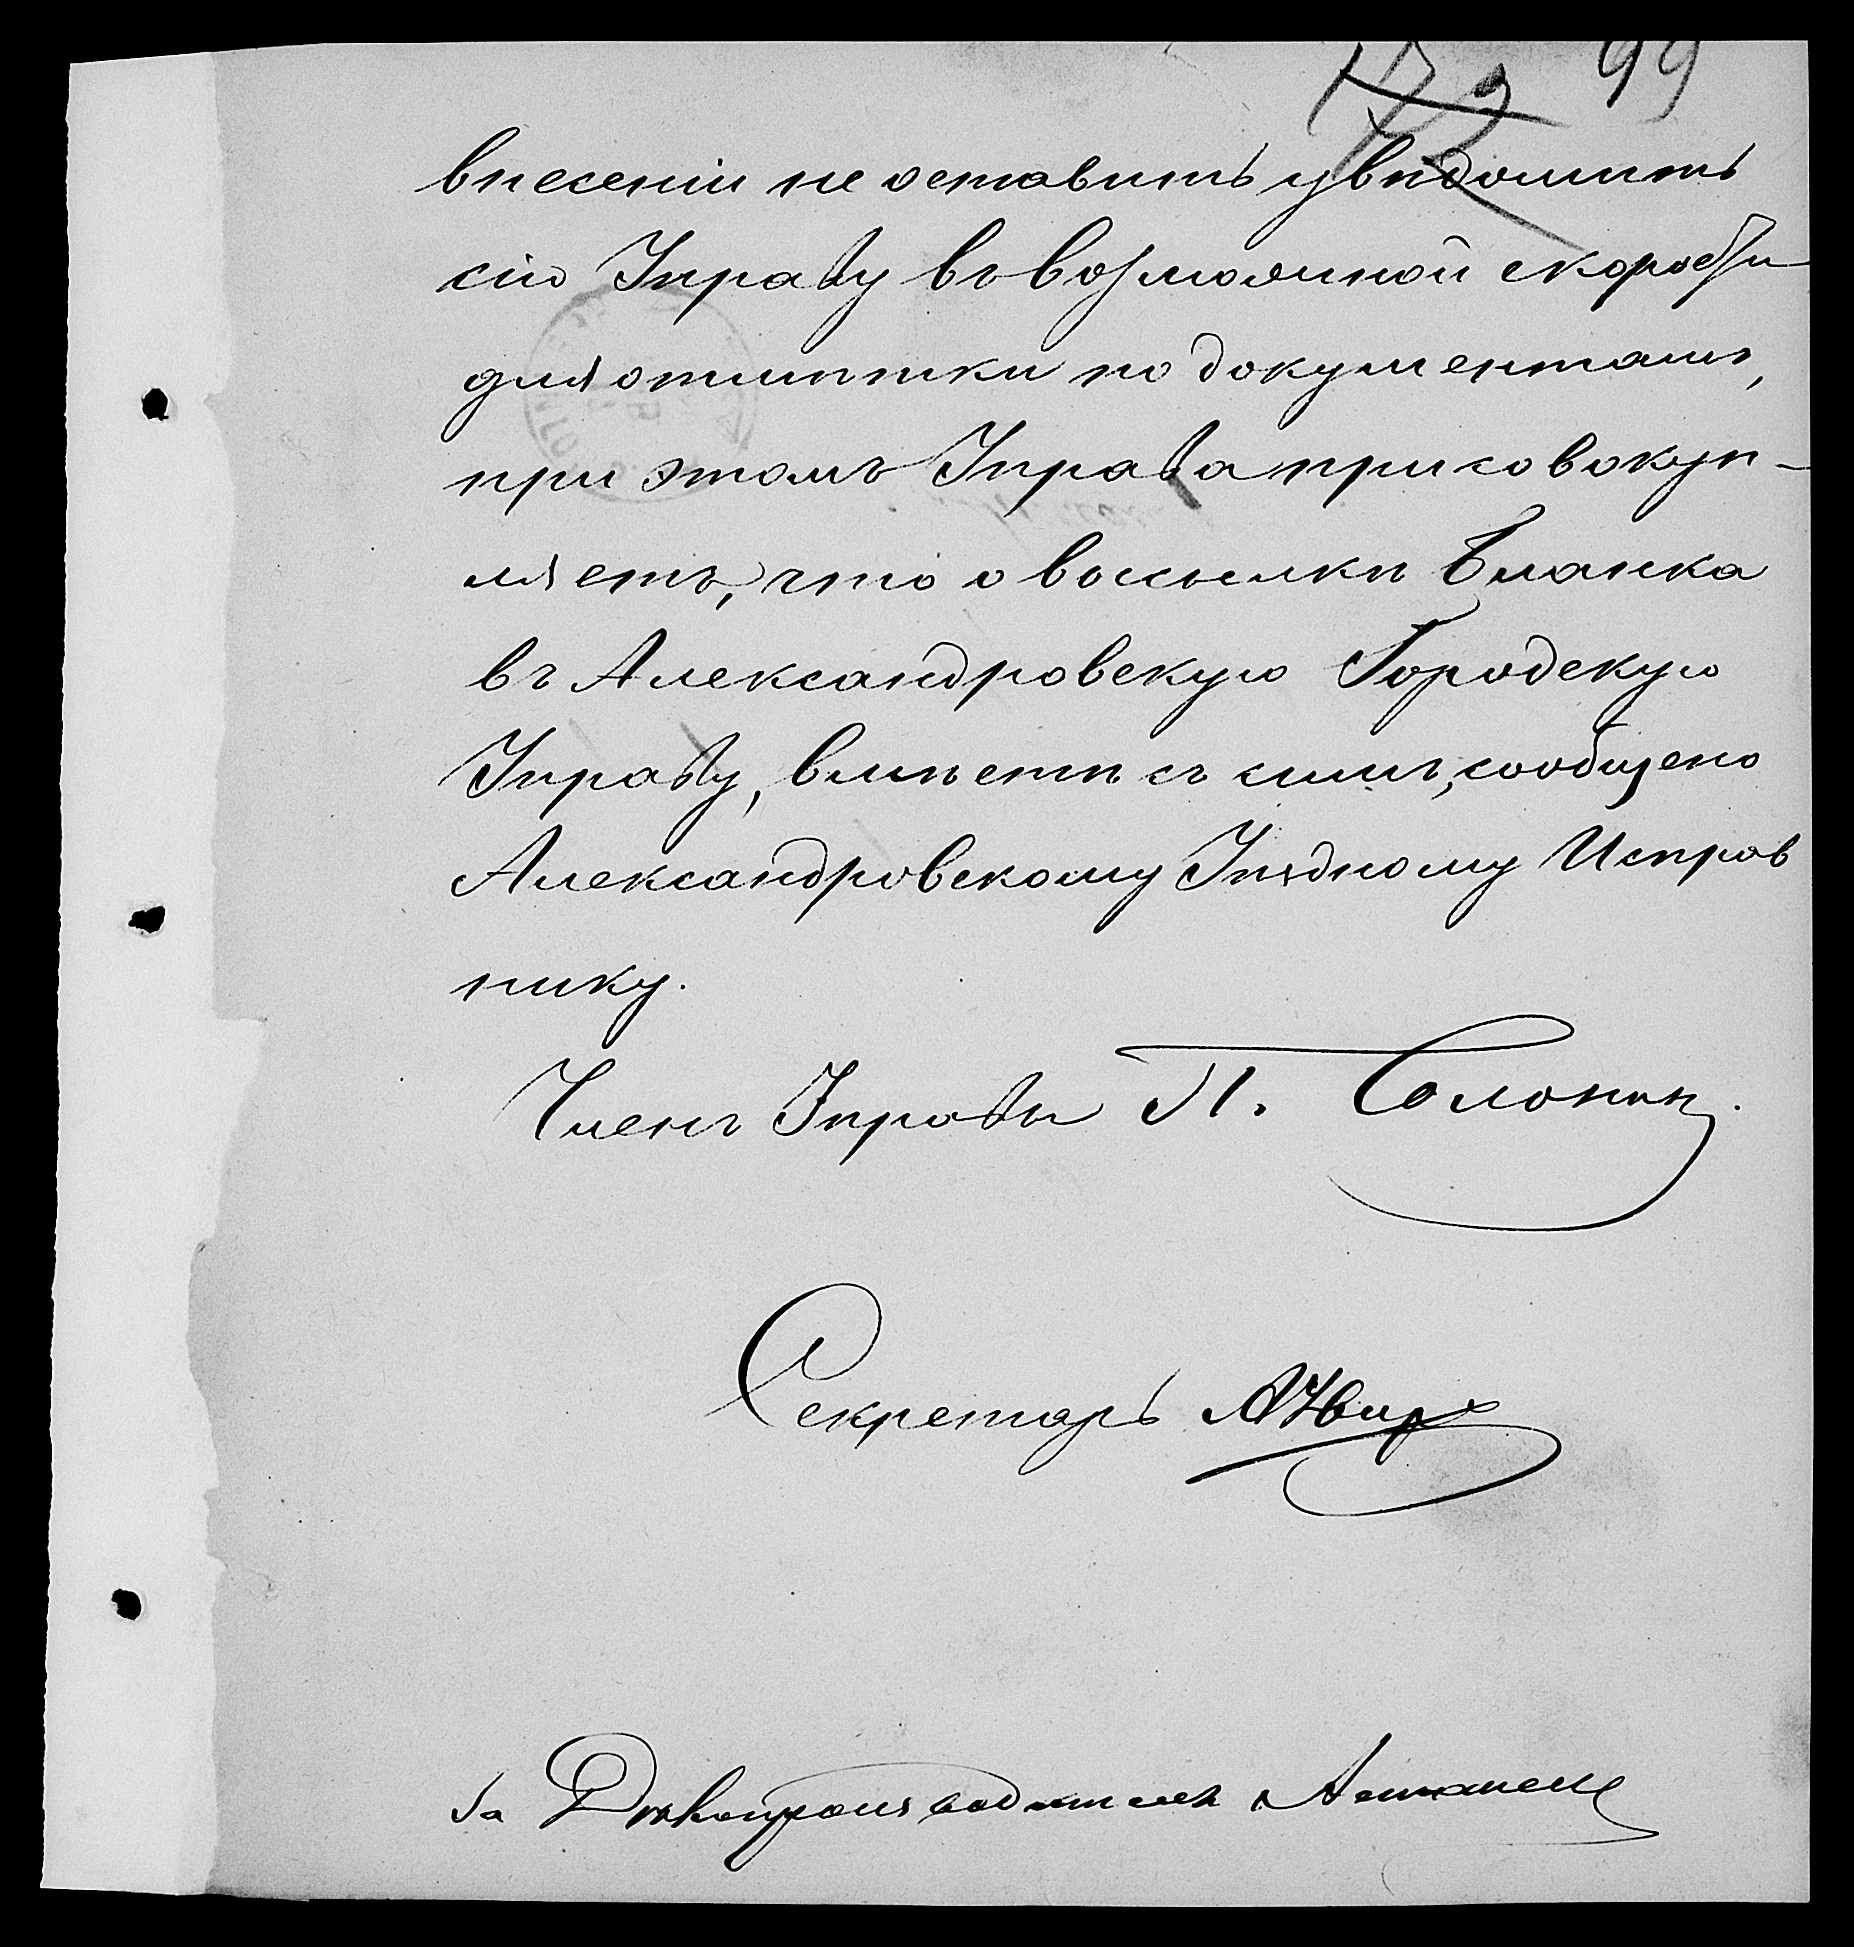 99
внесеніи не оставить увѣдомить
сію Управу въ возможной скорости
для отмѣтки по документамъ,
при этомъ Управа присовокуп-
ляетъ, что о высылкѣ бланка
въ Александровскую Городскую
Управу, вмѣстѣ съ симъ, сообщено
Александровскому Уѣздному Исправ
нику.
Членъ Управы П. Солонин
Секретарь
за Дѣлопроизводителя